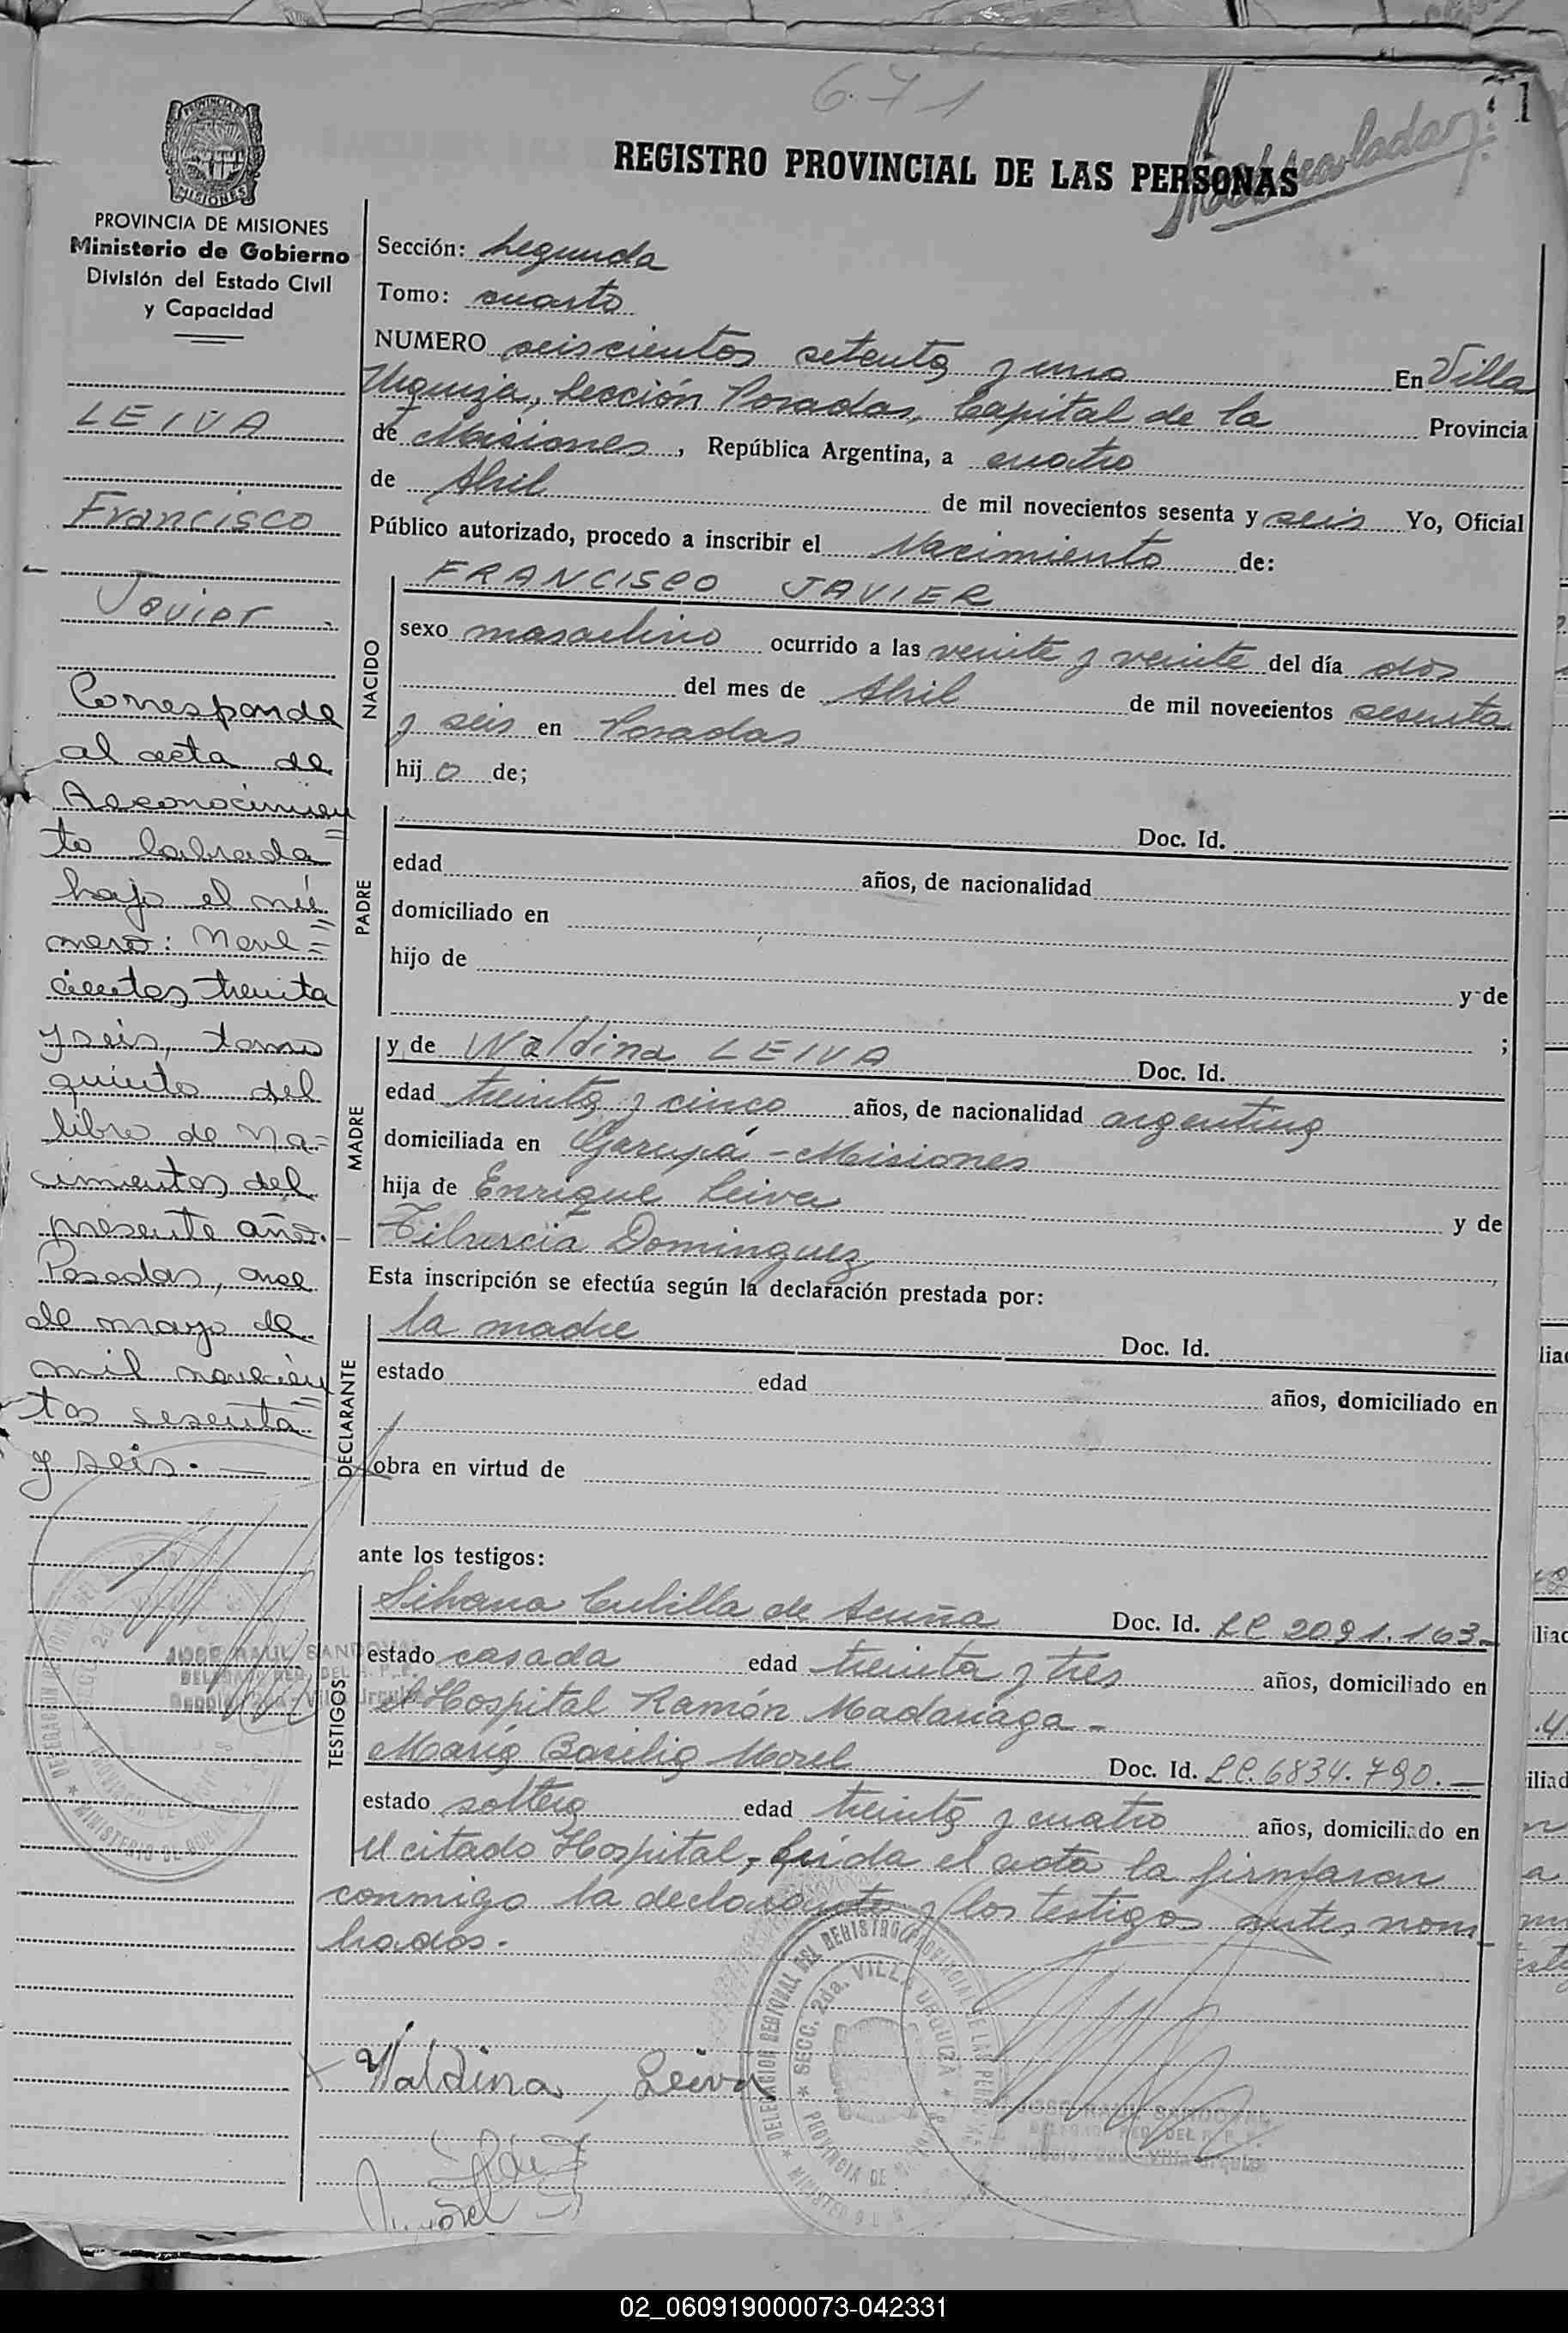 671
1
REGISTRO PROVINCIAL DE LAS PERSONAS
PROVINCIA DE MISIONES
Ministerio de Gobierno
División del Estado Civil
y Capacidad
LEIVA
Francisco
Javier
Corresponde
al acta de
Reconocimien=
to labrada
bajo el nú=
mero: Nove=
cientos treinta
y seis, tomo
quinto del
libro de Na=
cimientos del
presente año.
Posadas, once
de mayo de
mil novecien=
tos sesenta
y seis.-
Sección: Segunda
Tomo: cuarto
NUMERO seiscientos setenta y uno En Villa
Urquiza, Sección Posadas, Capital de la Provincia
de Misiones, República Argentina, a cuatro
de Abril de mil novecientos sesenta y seis Yo, Oficial
Público autorizado, procedo a inscribir el Nacimiento de:
NACIDO
FRANCISCO JAVIER
sexo masculino ocurrido a las veinte y veinte del día dos
del mes de Abril de mil novecientos sesenta
y seis en Posadas
hijo de;
PADRE
Doc. Id.
edad años, de nacionalidad
domiciliado en
hijo de
y de
;
MADRE
y de Waldina LEIVA Doc. Id.
edad treinta y cinco años, de nacionalidad argentina
domiciliada en Garupá - Misiones
hija de Enrique Leiva y de
Tiburcia Dominguez
Esta inscripción se efectúa según la declaración prestada por:
DECLARANTE
la madre Doc. Id.
estado edad años, domiciliado en
obra en virtud de
ante los testigos:
TESTIGOS
Silvana Cubilla de Acuña Doc. Id. LC 2091.163-
estado casada edad treinta y tres años, domiciliado en
el Hospital Ramón Madariaga -
María Basilia Morel Doc. Id. LC. 6834.790.-
estado soltera edad treinta y cuatro años, domiciliado en
el citado Hospital,- Leída el acta la firmaron
conmigo la declarante y los testigos antes nom-
brados.-
Waldina, Leiva
JOSE RAUL SANDOVAL
DELEGACION REGIONAL DEL REGISTRO PROVINCIAL DE LAS PERSONAS
SECC. 2da. VILLA URQUIZA
PROVINCIA DE
JOSE RAUL SANDOVAL
02_060919000073-042331